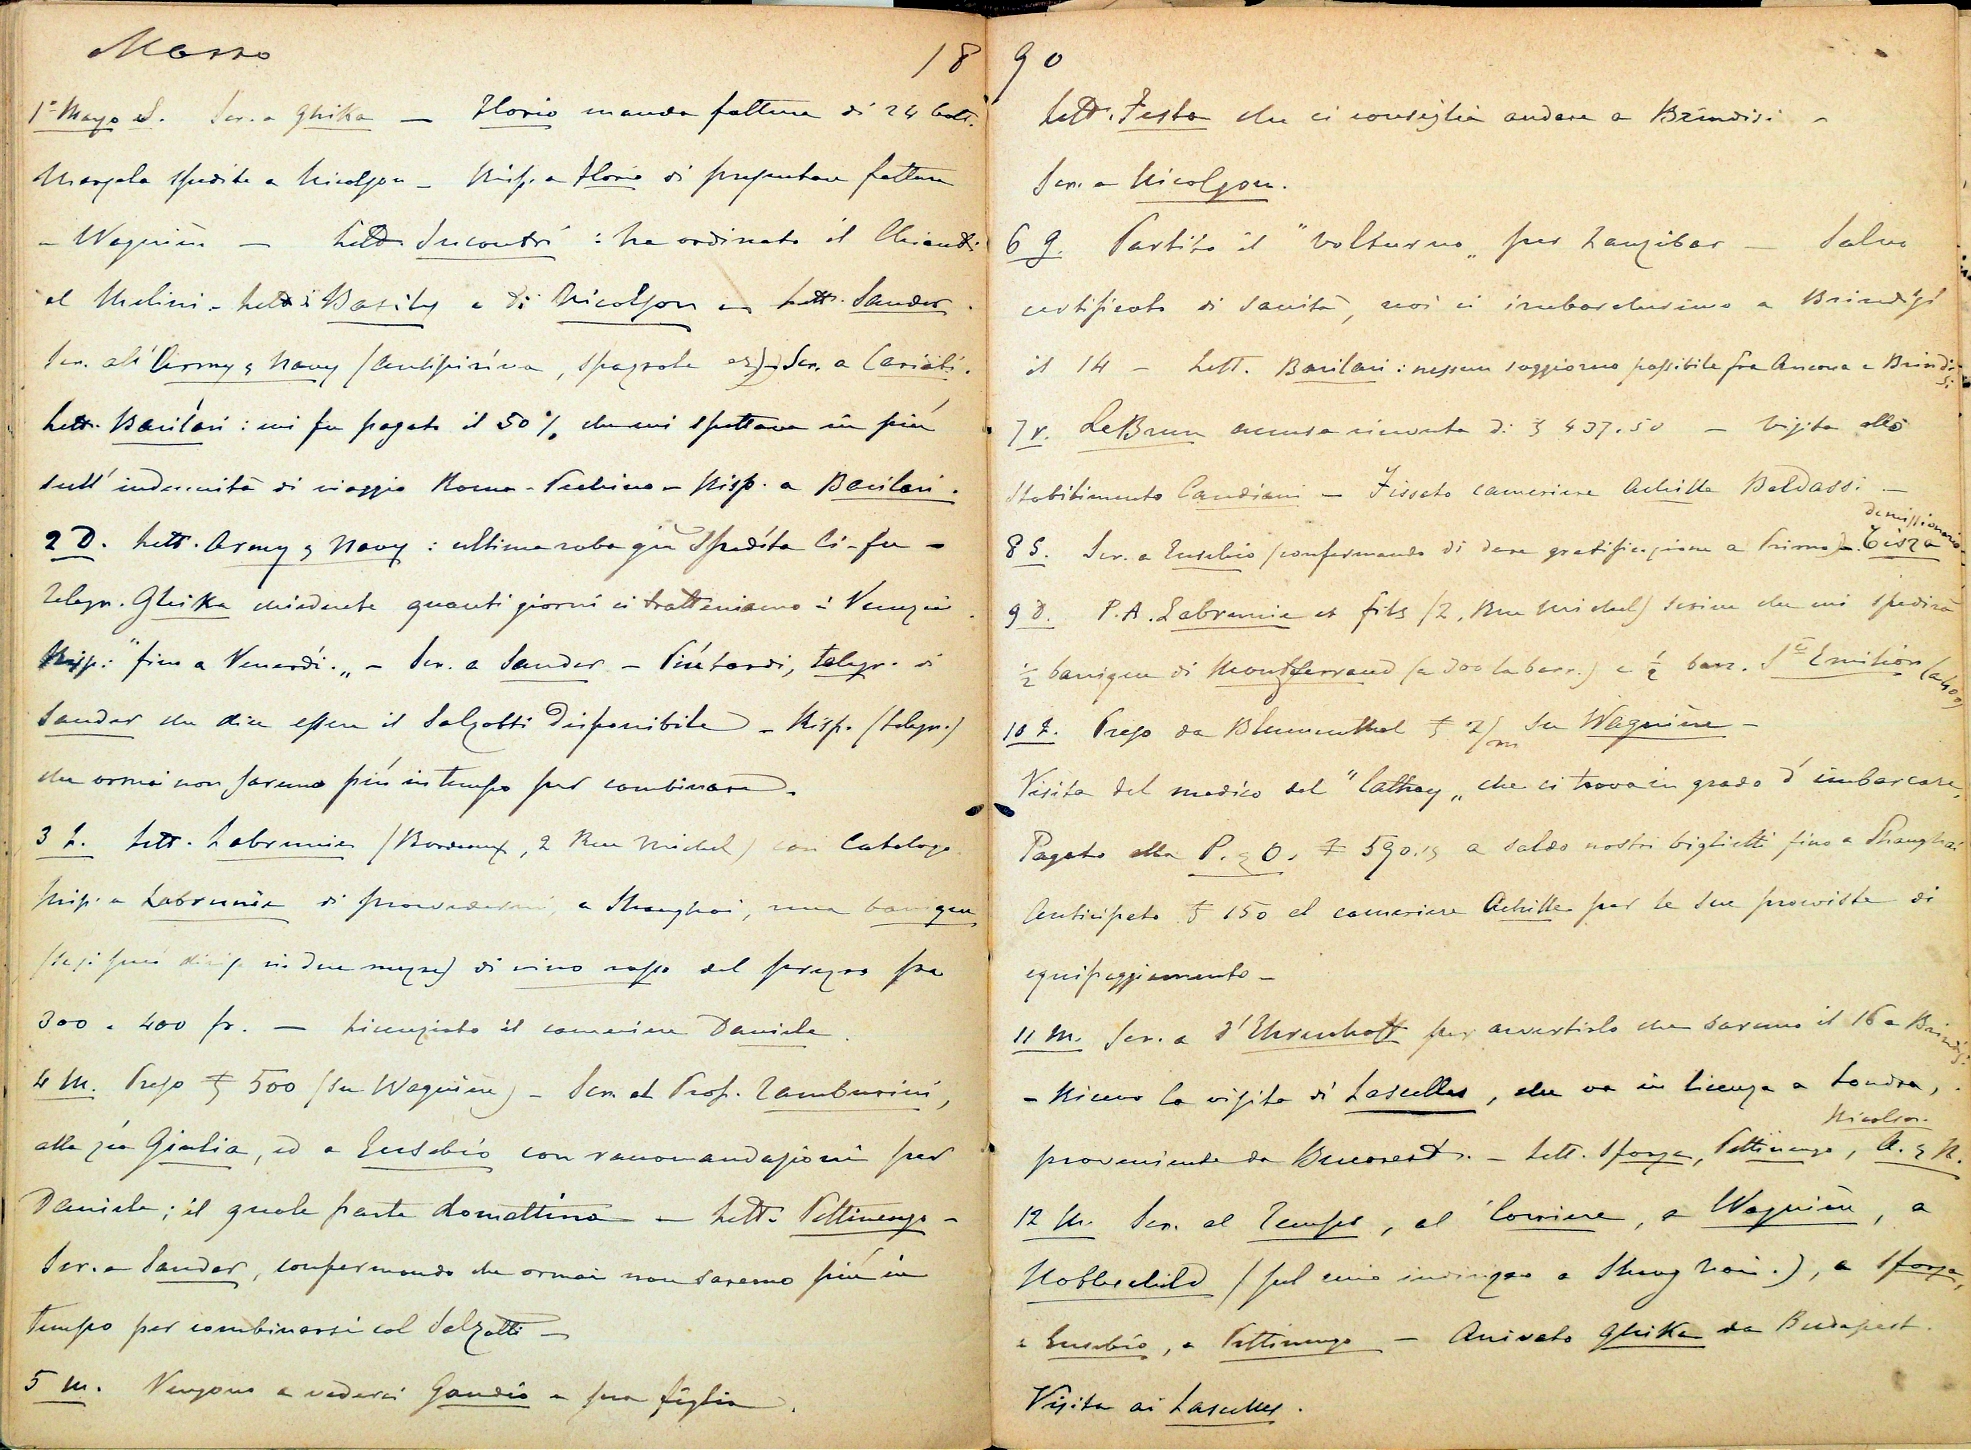 Marzo 18
1° Marzo S. Scr. a Ghika — Florio manda fattura di 24 bott.
Marsala spedite a Nicolson — Risp. a Florio di presentare fattura
a Wagnière — Lett. Incontri : ha ordinato il Chianti
al Melini - Lett. di Basily e di Nicolson — Lett. Sander.
Scr. all'Army & Navy (Antipirina, spagnole ) Scr. a Cariati.
Lett. Barilari : mi fu pagato il 50 % che mi spettava in più
sull' indennità di viaggio Roma - Pechino — Risp. a Barilari.
2 D. Lett. Army & Navy : ultima roba già spedita Ci-fu —
Telegr. Ghika chiedente quanti giorni ci tratteniamo a Venezia.
Risp: "fino a Venerdì." — Scr. a Sander — Più tardi, telegr. di
Sander che dice essere il Salzotti disponibile — Risp. (telegr.)
che ormai non saremo più in tempo per combinare.
3 L. Lett. Labrunie (Bordeaux, 2 Rue Michel) con Catalogo.
Risp. a Labrunie di provvedermi, a Shanghai, una barrique
(se si può in due mezze) di vino rosso del prezzo fra
300 e 400 fr. — Licenziato il cameriere Daniele.
4 M. Preso ₤ 500 (su Wagnière) — Scr. al Prof. Tamburini,
alla zia Giulia, ed a Eusebio con raccomandazioni per
Daniele; il quale parte domattina — Lett. Pettinengo —
Scr. a Sander, confermando che ormai non saremo più in
tempo per combinarsi col Salzotti —
5 M. Vengono a vederci Gaudio e sua figlia.
90
Lett. Festa che ci consiglia andare a Brindisi —
Scr. a Nicolson.
6 G. Partito il "Volturno" per Zanzibar — Salvo
certificato di sanità, noi ci imbarcheremo a Brindisi
il 14 — Lett. Barilari : nessun soggiorno possibile fra Ancona e Brindisi
7 V. LeBrun accusa rimonta di ₤ 437.50 — Visita allo
Stabilimento Candiani — Fissato cameriere Achille Baldassi —
8 S. Scr. a Eusebio (confermando di dare gratificazione a Primo) — Tisza
dimissionario
9 D. P. A. Labrunie et fils (2, Rue Michel) scrive che mi spedirà
½ barrique di Montferrand (a 300 la barr.) e ½ barr. St Emilion (a 400)
10 L. Preso da Blumenthal ₤ 2/m su Wagnière —
Visita del medico del "Cathay" che ci trova in grado d'imbarcare.
Pagato alla P. & O. ₤ 590.15 a saldo nostri biglietti fino a Shanghai
Anticipato ₤ 150 al cameriere Achille per le sue provviste di
equipaggiamento —
11 M. Scr. a d'Ehrenhoff per avvertirlo che saremo il 16 a Brindisi.
— Ricevo la visita di Lascelles, che va in licenza a Londra,
proveniente da Bucarest. — Lett. Sforza, Pettinengo, A. & N.
Nicolson.
12 M. Scr. al Temps, al Corriere, a Wagnière, a
Rothschild (pel mio indirizzo a Shanghai.), a Sforza,
a Eusebio, a Pettinengo — Arrivato Ghika da Budapest.
Visita ai Lascelles.